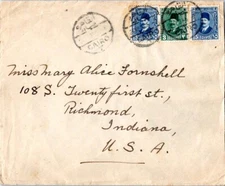 CAIRO
Miss Mary Alice Fornshell
108 S. Twenty first st.,
Richmond,
Indiana,
U. S. A.